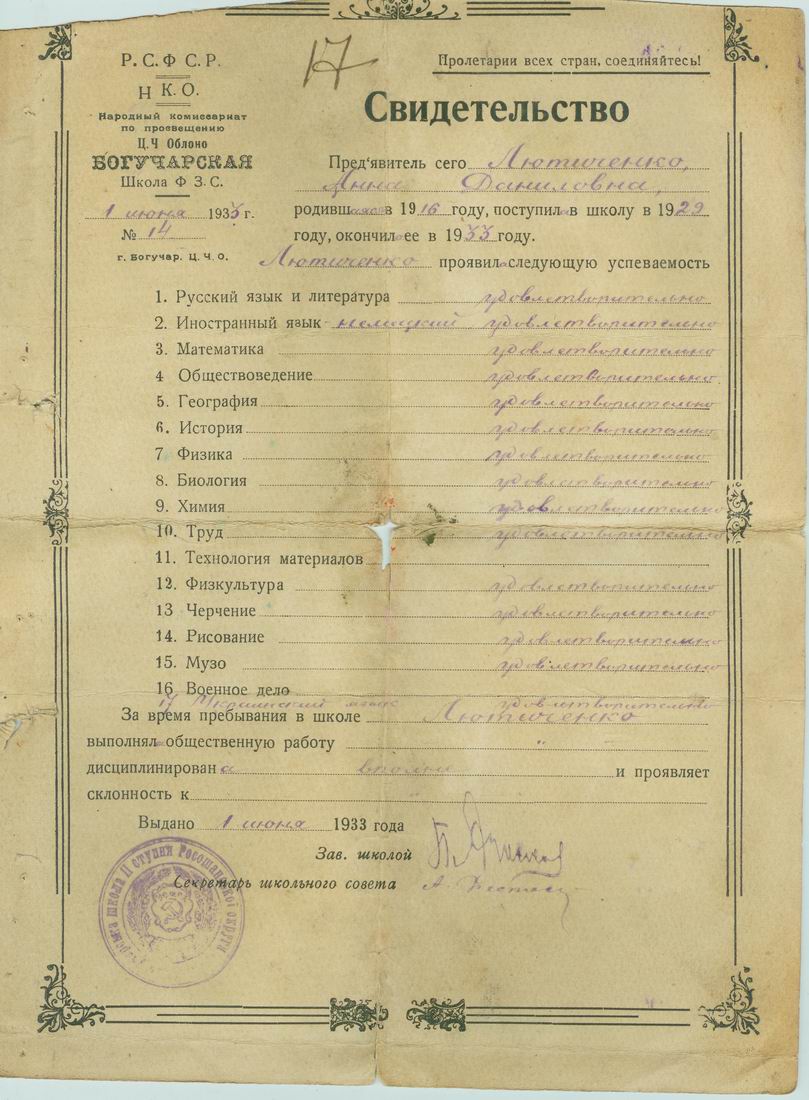 17
Р.С.Ф С.Р.
Н К.О.
Народный комиссариат
по просвещению
Ц.Ч Облоно
БОГУЧАРСКАЯ
Школа Ф З.С.
1 июня 1933 г.
№ 14
г. Богучар. Ц.Ч.О.
Пролетарии всех стран, соединяйтесь!
Свидетельство
Пред'явитель сего Лютиченко,
Анна Даниловна,
родившаяся в 1916 году, поступила в школу в 1929
году, окончила ее в 1933 году.
Лютиченко проявила следующую успеваемость
1. Русский язык и литература удовлетворительно
2. Иностранный язык немецкий удовлетворительно
3. Математика удовлетворительно
4 Обществоведение удовлетворительно
5. География удовлетворительно
6. История удовлетворительно
7 Физика удовлетворительно
8. Биология удовлетворительно
9. Химия удовлетворительно
10. Труд удовлетворительно
11. Технология материалов
12. Физкультура удовлетворительно
13 Черчение удовлетворительно
14. Рисование удовлетворительно
15. Музо удовлетворительно
16 Военное дело
17 Украинский язык удовлетворительно
За время пребывания в школе Лютиченко
выполняла общественную работу "
дисциплинирована вполне и проявляет
склонность к "
Выдано 1 июня 1933 года
Зав. школой
Секретарь школьного совета
школа II ступени Россошанского округа